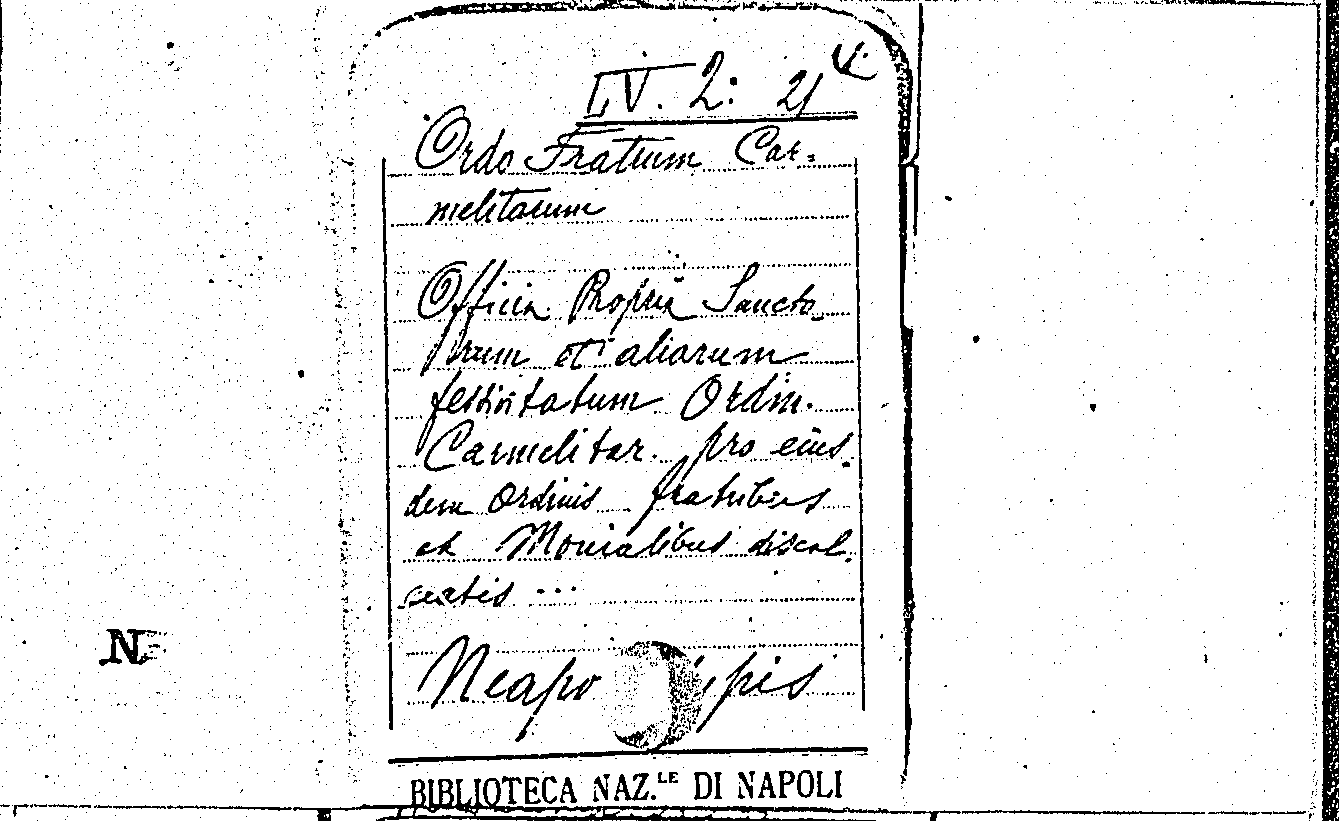 LV. 2: 21 4.
Ordo Fratrum Car=
melitarum
Officia Propria Sancto_
rum et aliarum
festivitatum Ordin.
Carmelitar. pro eius_
dem Ordinis fratribus
et Monialibus discal_
ceatis ...
Neapo ipis
N
BIBLIOTECA NAZ.LE DI NAPOLI